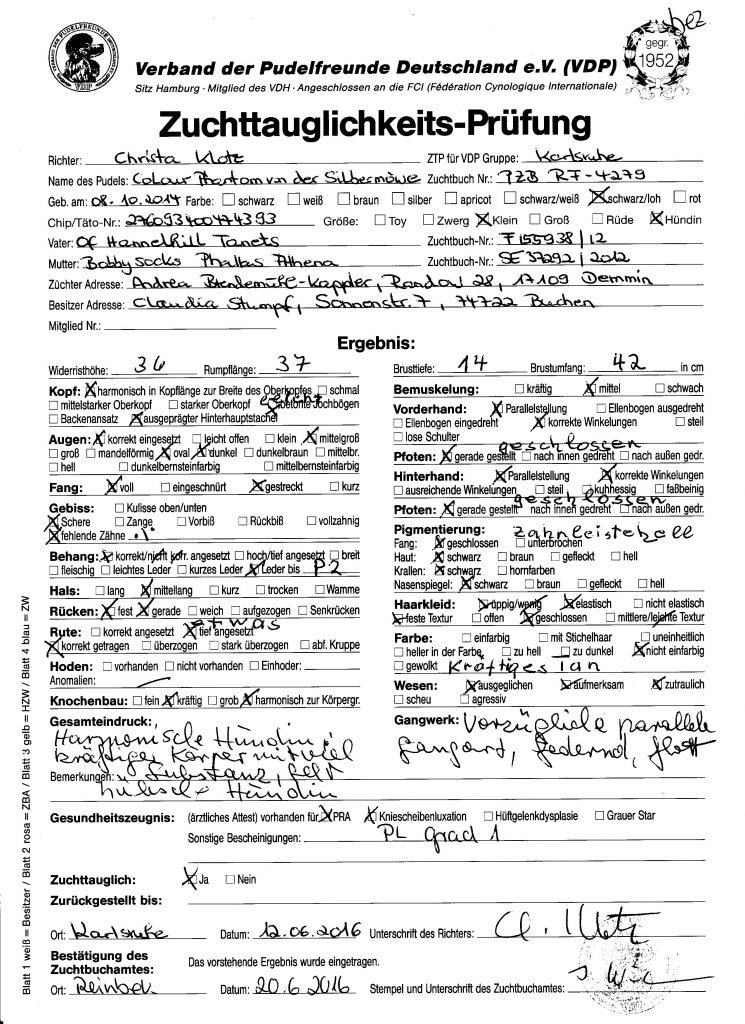 bez
VERBAND DER PUDELFREUNDE DEUTSCHLAND e.V.
VDP
gegr.
1952
Verband der Pudelfreunde Deutschland e.V. (VDP)
Sitz Hamburg · Mitglied des VDH · Angeschlossen an die FCI (Fédération Cynologique Internationale)
Zuchttauglichkeits-Prüfung
Richter: Christa Klotz ZTP für VDP Gruppe: Karlsruhe
Name des Pudels: Colour Phantom von der Silbermöwe Zuchtbuch Nr.: PZB RF-4279
Geb. am: 08.10.2014 Farbe: ☐ schwarz ☐ weiß ☐ braun ☐ silber ☐ apricot ☐ schwarz/weiß ☒ schwarz/loh ☐ rot
Chip/Täto-Nr.: 276093400474393 Größe: ☐ Toy ☐ Zwerg ☒ Klein ☐ Groß ☐ Rüde ☒ Hündin
Vater: Of Hannelhill Tanets Zuchtbuch-Nr.: F155938/12
Mutter: Bobby socks Phallas Athena Zuchtbuch-Nr.: SE 37292/2012
Züchter Adresse: Andrea Bendemühl-Kappler, Randow 28, 17109 Demmin
Besitzer Adresse: Claudia Stumpf, Sonnenstr. 7, 74722 Buchen
Mitglied Nr.:
Ergebnis:
Widerristhöhe: 36 Rumpflänge: 37 Brusttiefe: 14 Brustumfang: 42 in cm
Kopf: ☒ harmonisch in Kopflänge zur Breite des Oberkopfes ☐ schmal
☐ mittelstarker Oberkopf ☐ starker Oberkopf leicht ☒ betonte Jochbögen
☐ Backenansatz ☒ ausgeprägter Hinterhauptstachel
Augen: ☒ korrekt eingesetzt ☐ leicht offen ☐ klein ☒ mittelgroß
☐ groß ☐ mandelförmig ☒ oval ☒ dunkel ☐ dunkelbraun ☐ mittelbr.
☐ hell ☐ dunkelbernsteinfarbig ☐ mittelbernsteinfarbig
Fang: ☒ voll ☐ eingeschnürt ☒ gestreckt ☐ kurz
Gebiss: ☐ Kulisse oben/unten
☒ Schere ☐ Zange ☐ Vorbiß ☐ Rückbiß ☐ vollzahnig
☒ fehlende Zähne
Behang: ☒ korrekt/nicht korr. angesetzt ☐ hoch/tief angesetzt ☐ breit
☐ fleischig ☐ leichtes Leder ☐ kurzes Leder ☒ Leder bis P2
Hals: ☐ lang ☒ mittellang ☐ kurz ☐ trocken ☐ Wamme
Rücken: ☒ fest ☒ gerade ☐ weich ☐ aufgezogen ☐ Senkrücken
etwas
Rute: ☐ korrekt angesetzt ☒ tief angesetzt
☒ korrekt getragen ☐ überzogen ☐ stark überzogen ☐ abf. Kruppe
Hoden: ☐ vorhanden ☐ nicht vorhanden ☐ Einhoder:
Anomalien:
Knochenbau: ☐ fein ☒ kräftig ☐ grob ☒ harmonisch zur Körpergr.
Gesamteindruck:
Harmonische Hündin,
kräftiger Körper mit viel
Bemerkungen: Substanz,
hübsche Hündin
Bemuskelung: ☐ kräftig ☒ mittel ☐ schwach
Vorderhand: ☒ Parallelstellung ☐ Ellenbogen ausgedreht
☐ Ellenbogen eingedreht ☒ korrekte Winkelungen ☐ steil
☐ lose Schulter geschlossen
Pfoten: ☒ gerade gestellt ☐ nach innen gedreht ☐ nach außen gedr.
Hinterhand: ☒ Parallelstellung ☒ korrekte Winkelungen
☐ ausreichende Winkelungen ☐ steil ☐ kuhhessig ☐ faßbeinig
geschlossen
Pfoten: ☒ gerade gestellt ☐ nach innen gedreht ☐ nach außen gedr.
Pigmentierung: Zahnleiste hell
Fang: ☒ geschlossen ☐ unterbrochen
Haut: ☒ schwarz ☐ braun ☐ gefleckt ☐ hell
Krallen: ☒ schwarz ☐ hornfarben
Nasenspiegel: ☒ schwarz ☐ braun ☐ gefleckt ☐ hell
Haarkleid: ☒ üppig/wenig ☒ elastisch ☐ nicht elastisch
☒ feste Textur ☐ offen ☒ geschlossen ☐ mittlere/leichte Textur
Farbe: ☐ einfarbig ☐ mit Stichelhaar ☐ uneinheitlich
☐ heller in der Farbe ☐ zu hell ☐ zu dunkel ☒ nicht einfarbig
☐ gewolkt Kräftiges Tan
Wesen: ☒ ausgeglichen ☒ aufmerksam ☒ zutraulich
☐ scheu ☐ agressiv
Gangwerk: Vorzügliche parallele
Gangart, federnd, flott
Gesundheitszeugnis: (ärztliches Attest) vorhanden für ☒ PRA ☒ Kniescheibenluxation ☐ Hüftgelenkdysplasie ☐ Grauer Star
Sonstige Bescheinigungen: PL Grad 1
Zuchttauglich: ☒ Ja ☐ Nein
Zurückgestellt bis:
Ort: Karlsruhe Datum: 12.06.2016 Unterschrift des Richters: Ch. Klotz
Bestätigung des
Zuchtbuchamtes: Das vorstehende Ergebnis wurde eingetragen.
Ort: Reinbek Datum: 20.6.2016 Stempel und Unterschrift des Zuchtbuchamtes:
Blatt 1 weiß = Besitzer / Blatt 2 rosa = ZBA / Blatt 3 gelb = HZW / Blatt 4 blau = ZW